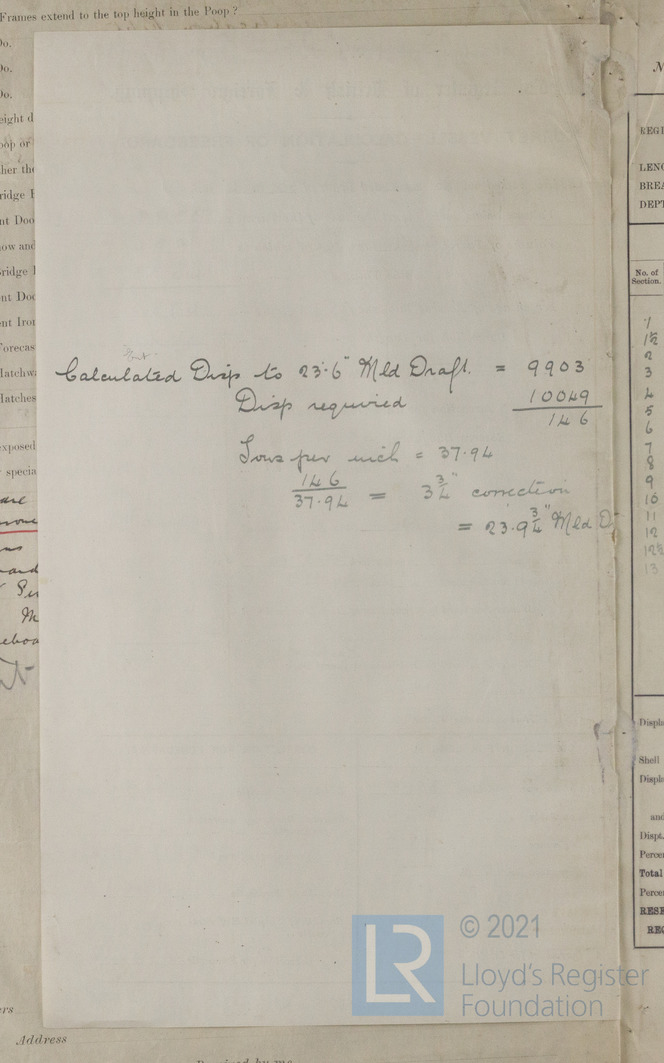 Frames extend to the top height in the Poop?
Do.
Do.
Do.
eight d
oop or
her the
ridge
nt Doo
ow and
ridge
nt Doo
nt Iron
Forecas
Hatchwa
Hatches
exposed
specia
are
ward
Calculated Disp to 23'·6" Mld Draft. = 9903
Disp required 10049
146
Tons per inch = 37·94
146
37·94 = 3 3/4" correction
= 23'·9 3/4" Mld D
REGI
LENG
BREA
DEPT
No. of
Section.
1
1½
2
3
4
5
6
7
8
9
10
11
12
12½
13
Displ
Shell
Displ
and
Dispt.
Percen
Total
Percen
RESE
REG
© 2021
LR
Lloyd's Register
Foundation
ers
Address
Received by me